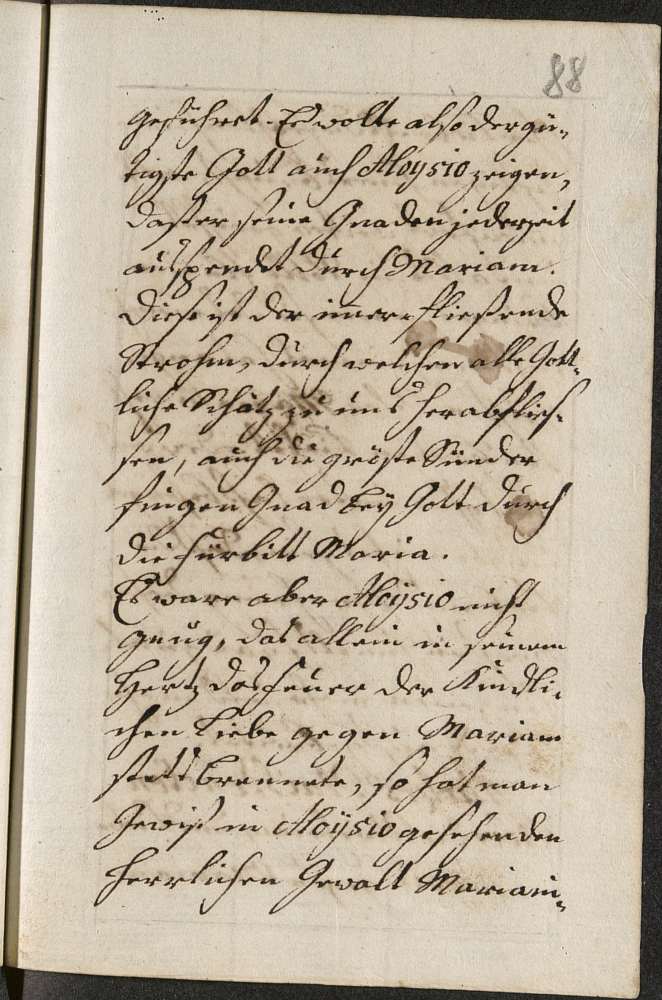 88
geführet. Er wolte also der gü-
tigste Gott auch Aloysio zeigen,
daß er seine Gnaden jederzeit
ausspendet durch Mariam.
Diese ist der immerfließende
Strohm, durch welchen alle Gött-
liche Schätz zu uns herabflies-
sen, auch die gröste Sünder
fingen Gnad bey Gott durch
die fürbitt Maria.
Es ware aber Aloysio nicht
gnug, das allein in seinem
Hertz das feuer der Kindli-
chen Liebe gegen Mariam
stätt brennete, so hat man
Gewiß in Aloysio gesehen den
herrlichen Gewalt Mariam-